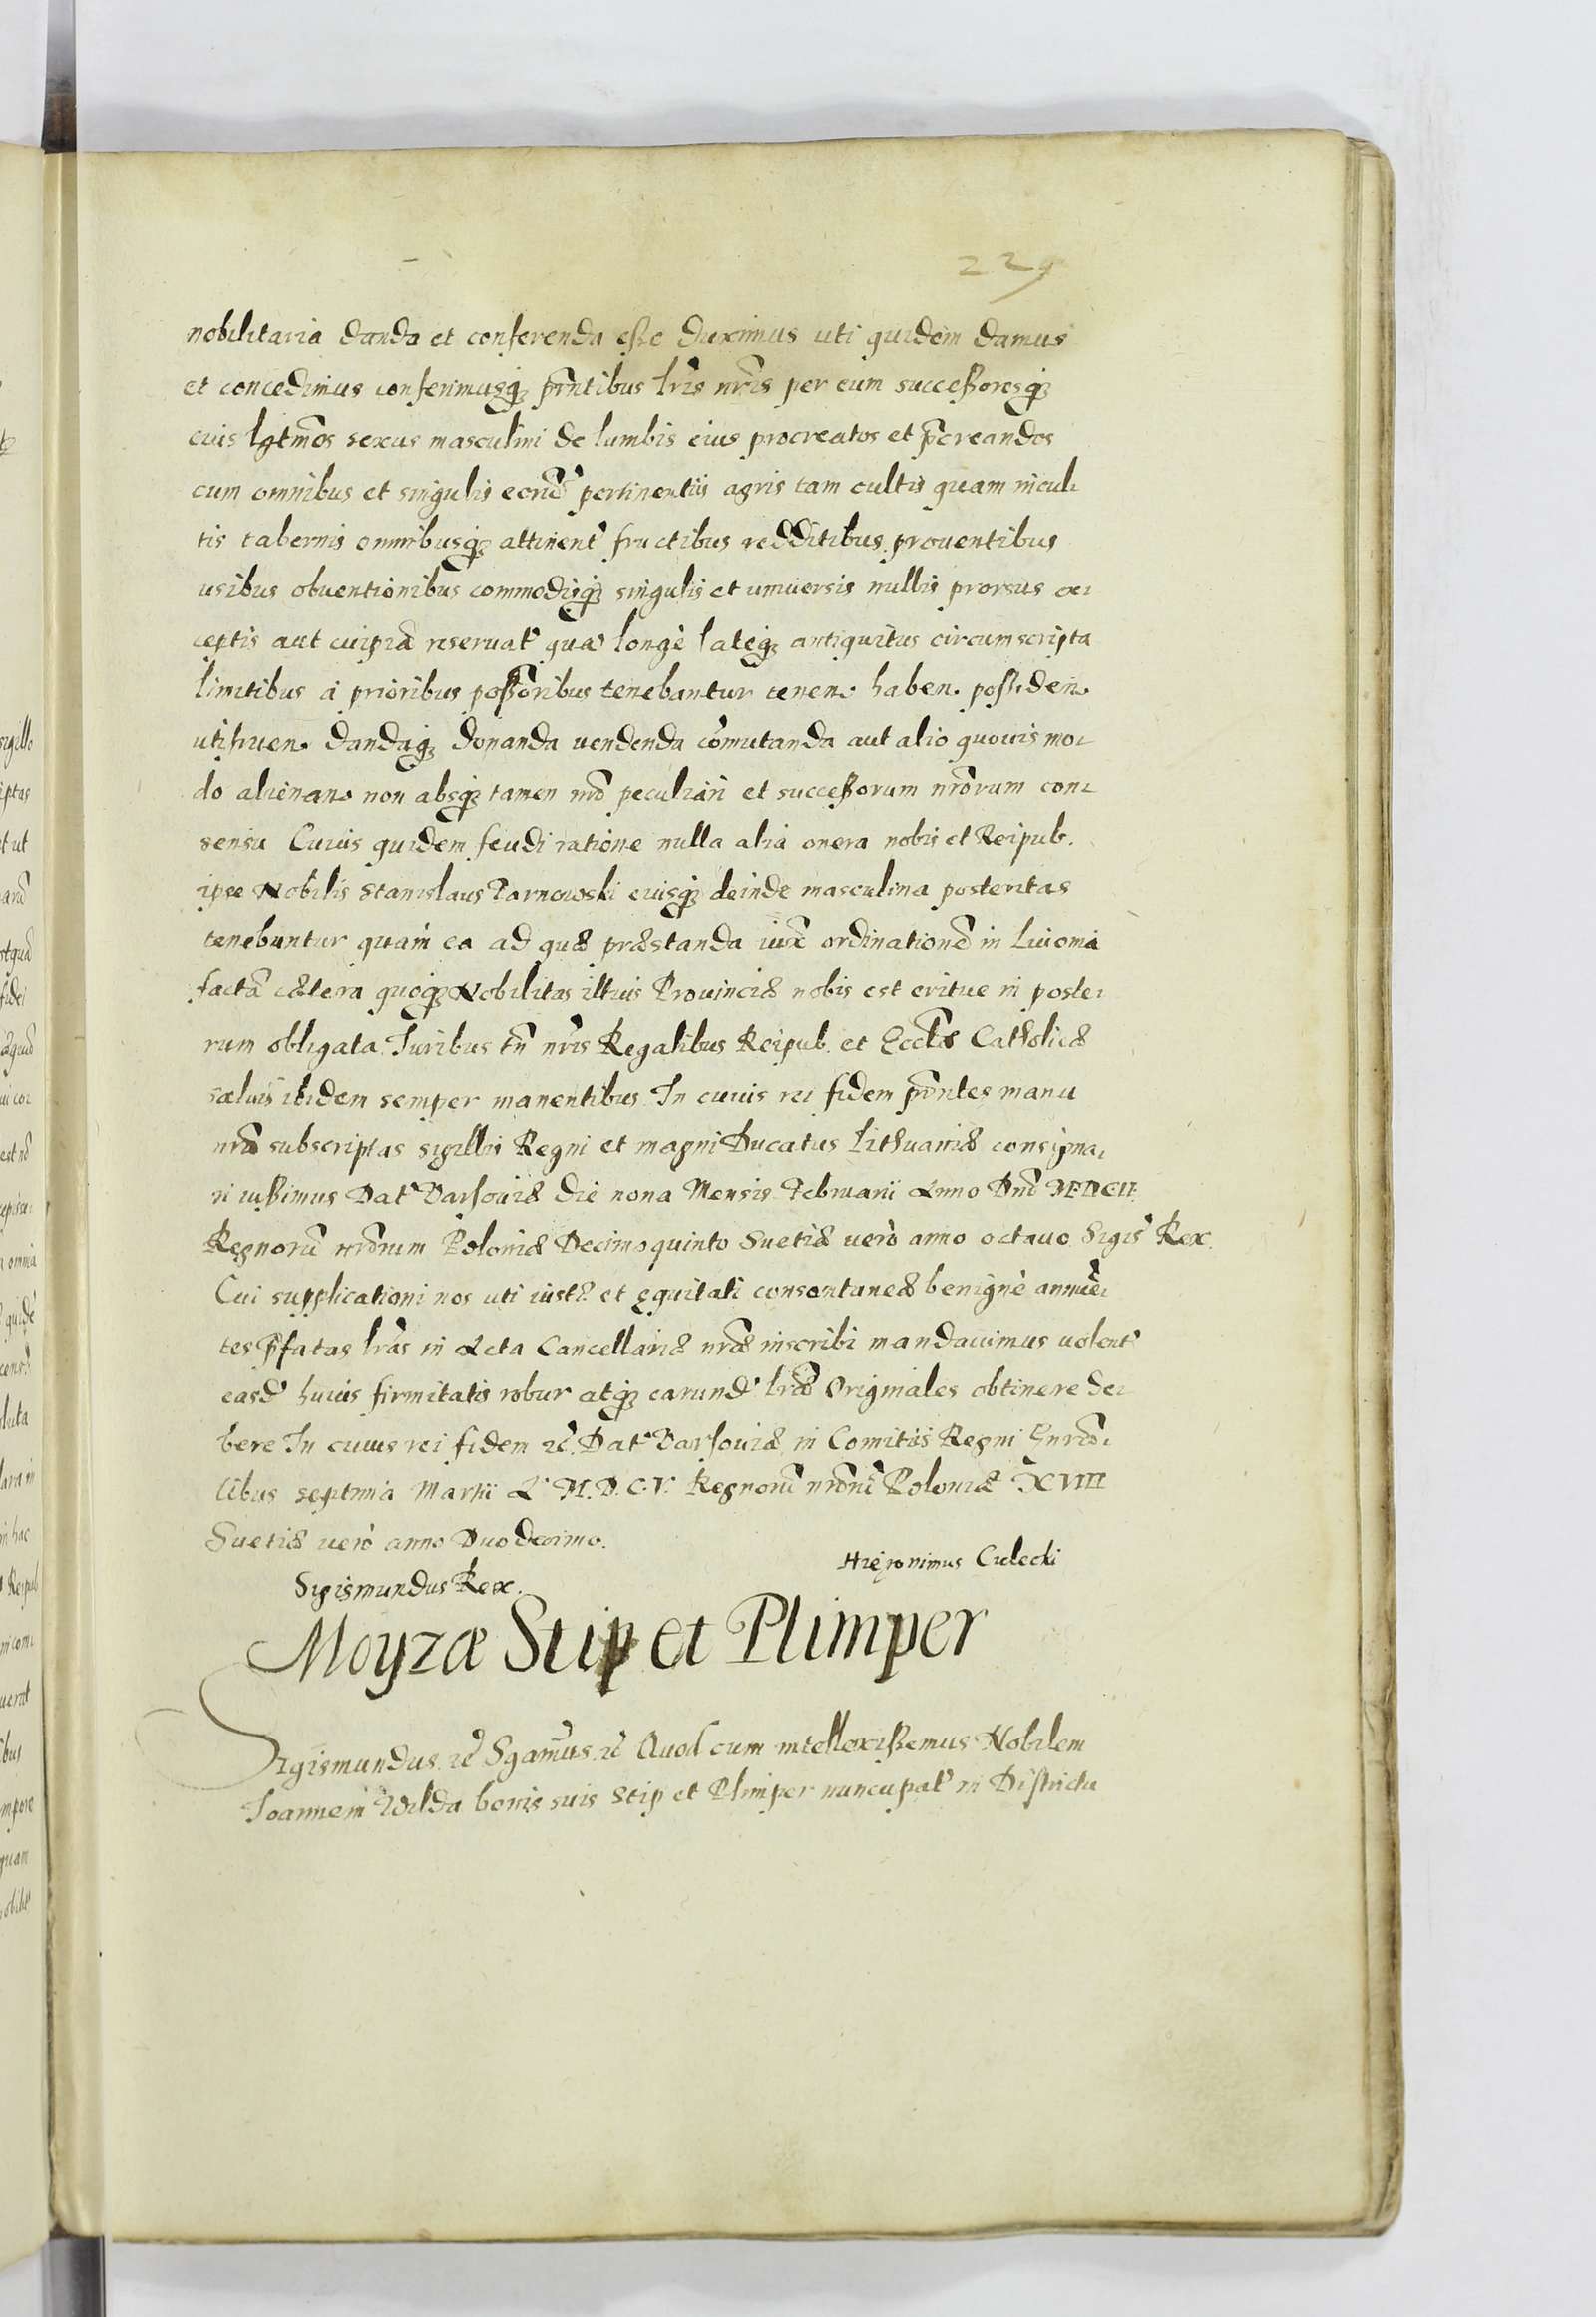 229
nobilitaria danda et conferenda esse duximus uti quidem damus
et concedimus conferimusq3 pñtibus lr̃is nr̃is per eum successoresq3
euis lgtm̃os sexus masculini de lumbis eius procreatos et p̃creandos
cum omnibus et singulis eorũ pertinentiis agris tam cultis quam incul-
tis tabernis omnibusq3 attinent' fructibus redditibus prouentibus
usibus obuentionibus commodisq3 singulis et uniuersis nullis prorsus ex-
ceptis aut cuipiã reseruat' qua' longè lateq3 antiquitus circumscripta
limitibus à prioribus possõribus tenebantur tenen. haben. possiden.
utifruen. dandaq3 donanda uendenda cõmutanda aut alio quouis mo-
do alienan. non absq3 tamen nr̃o peculiari et successorum nr̃orum con-
sensu Cuius quidem feudi ratione nulla alia onera nobis et Reipub.
ipse Nobilis Stanislaus Tarnowski eiusq3 deinde masculina posteritas
tenebuntur quam ea ad quæ præstanda iuxᵃ ordinationẽ in Liuonia
factã cætera quoq3 Nobilitas illius Prouinciæ nobis est eritue in poste-
rum obligata Juribus tñ nr̃is Regalibus Reipub. et Eccl̃æ Catholicæ
saluis ibidem semper manentibus In cuius rei fidem pñtes manu
nr̃a subscriptas sigillis Regni et magni Ducatus Lithuaniæ consigna-
ri iussimus Dat' Varsouiæ die nona Mensis Februarii Anno Dñi MDCII
Regnorũ nr̃orum Poloniæ Decimoquinto Suetiæ uerò anno octauo Sigis' Rex.
Cui supplicationi nos uti iustæ et ęquitati consontaneæ benignè annuẽ-
tes p̃fatas lr̃as in Acta Cancellariæ nr̃æ inscribi mandauimus uolent'
easd' huius firmitatis robur atq3 earund' lr̃æ Originales obtinere de-
bere In cuius rei fidem &c̃. Dat' Varsouiæ in Comitiis Regni Gnr̃a-
libus septima Martii A' M.D.C.V. Regnorũ nr̃orũ Poloniæ XVIII
Suetiæ uerò anno Duodecimo.
Hieronimus Cielecki
Sigismundus Rex.
Moyzæ Stip et Plimper
Sigismundus &c̃ Sgam̃us &c̃ Quod cum intellexissemus Nobilem
Joannem Wilda bonis suis Stip et Plimper nuncupat' in Districtu